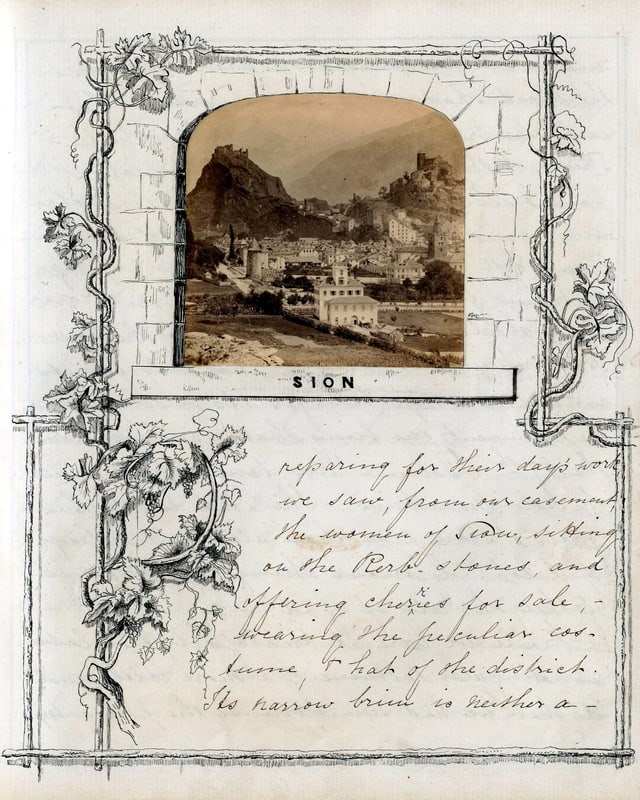 SION
Preparing for their day's work
we saw, from our casement
the women of Sion, sitting
on the Kerb-stones, and
offering cherries for sale, -
wearing the peculiar cos-
tume, & hat of the district.
Its narrow brim is neither a-